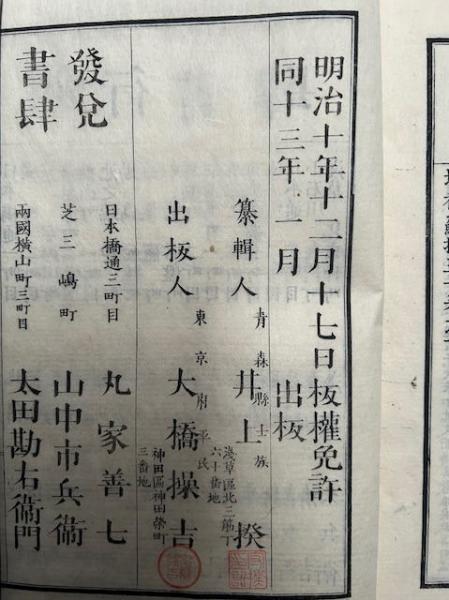 明治十年十二月十七日板權免許
同十三年一月 出板
纂輯人 青森縣士族 井上揆 淺草區北三筋丁六十番地
出板人 東京府平民 大橋操吉 神田區神田榮町三番地
發兌
書肆
日本橋通三町目 丸家善七
芝三嶋町 山中市兵衞
兩國橫山町三町目 太田勘右衞門